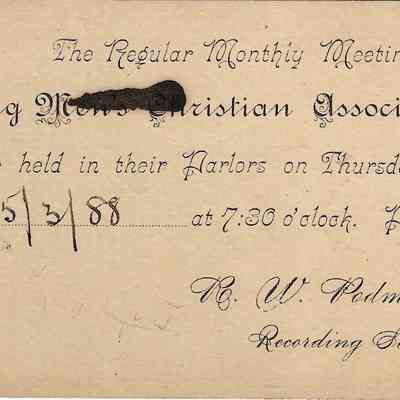 The Regular Monthly Meetin
g Men's Christian Associ
held in their Parlors on Thursda
5/3/88 at 7:30 o'clock. P
R. W. Podm
Recording Se